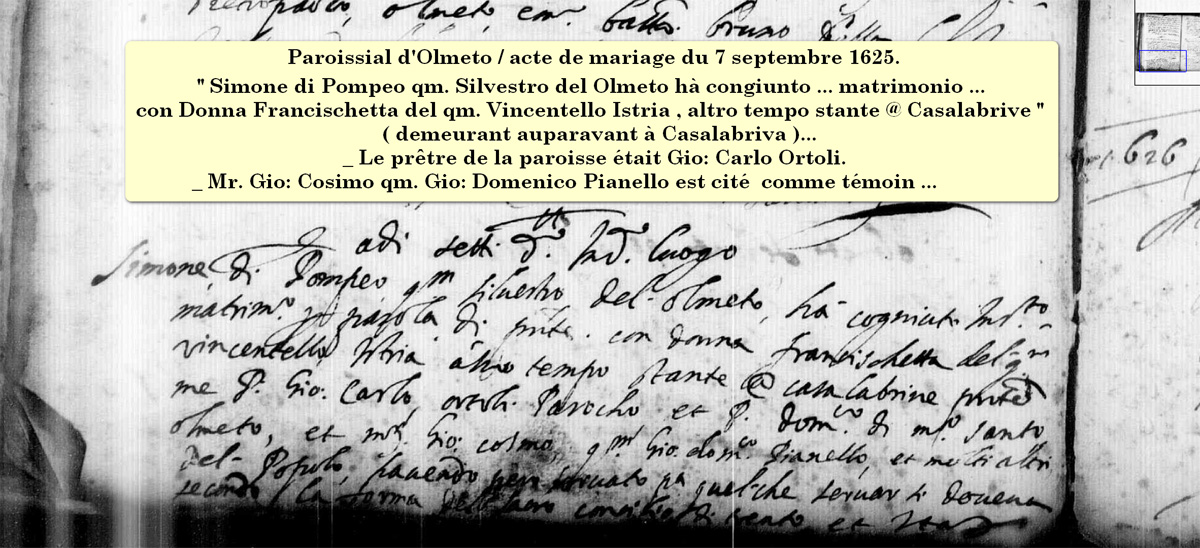 olmeto
Paroissial d'Olmeto / acte de mariage du 7 septembre 1625.
" Simone di Pompeo qm. Silvestro del Olmeto hà congiunto ... matrimonio ...
con Donna Francischetta del qm. Vincentello Istria , altro tempo stante @ Casalabrive "
( demeurant auparavant à Casalabriva )...
_ Le prêtre de la paroisse était Gio: Carlo Ortoli.
_ Mr. Gio: Cosimo qm. Gio: Domenico Pianello est cité comme témoin ...
1626
adi setti d.º luogo
Simone di Pompeo qm silvestro del olmeto, hà
matrim.º parola di con donna francischetta del q.m
vincentello Istria altro tempo stante @ casalabrive
me P. Gio: Carlo ortoli Parocho et P. dom.co di santo
olmeto, et Gio: cosmo, qm Gio: dom.co Pianello, et molti altri
del Popolo, havendo quelche servar si doveva
secondo la forma del sacro concilio di trento et